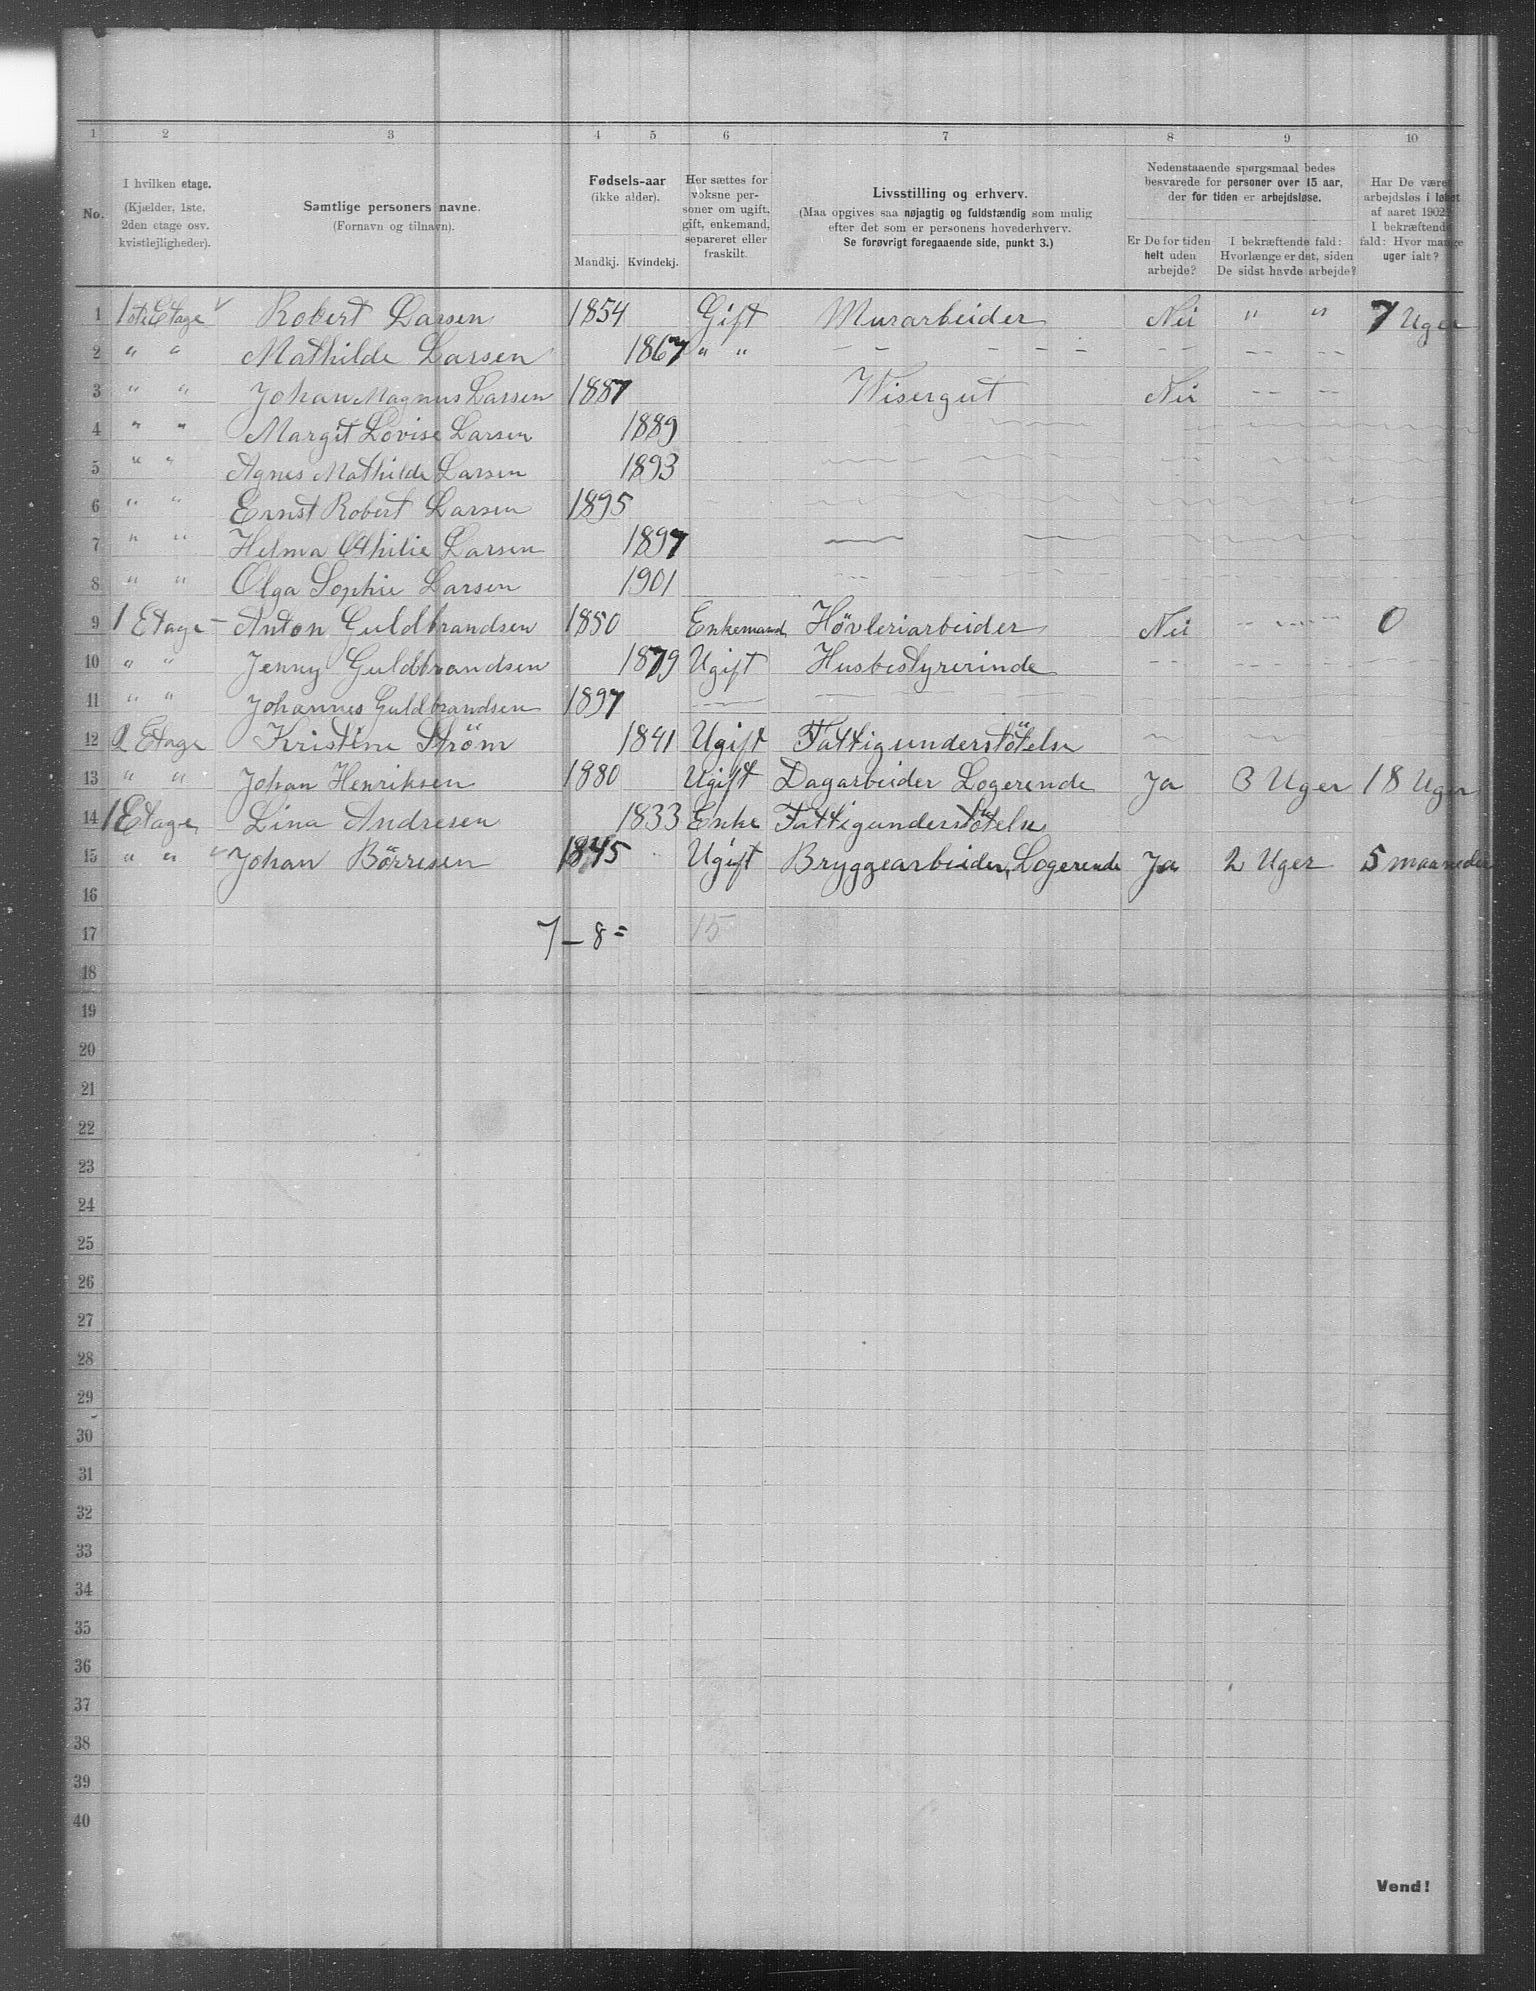 1 2 3 4 5 6 7 8 9 10
No.
I hvilken etage.
(Kjælder, 1ste,
2den etage osv.
kvistlejligheder).
Samtlige personers navne.
(Fornavn og tilnavn).
Fødsels-aar
(ikke alder).
Mandkj. Kvindekj.
Her sættes for
voksne per-
soner om ugift,
gift, enkemand,
separeret eller
fraskilt.
Livsstilling og erhverv.
(Maa opgives saa nøjagtig og fuldstændig som mulig
efter det som er personens hovederhverv.
Se forøvrigt foregaaende side, punkt 3.)
Nedenstaaende spørgsmaal bedes
besvarede for personer over 15 aar,
der for tiden er arbejdsløse.
Er De for tiden
helt uden
arbejde?
I bekræftende fald:
Hvorlænge er det, siden
De sidst havde arbejde?
Har De været
arbejdsløs i løbet
af aaret 1902?
I bekræftende
fald: Hvor mange
uger ialt?
1 1ste Etage Robert Larsen 1854 Gift Murarbeider Nei " " 7 Uger
2 " " Mathilde Larsen 1867 " " - - - - - - - - - - -
3 " " Johan Magnus Larsen 1887 Visergut Nei - - - -
4 " " Margit Lovise Larsen 1889
5 " " Agnes Mathilde Larsen 1893
6 " " Ernst Robert Larsen 1895
7 " " Helma Larsen 1897
8 " " Olga Sophie Larsen 1901
9 1 Etage - Anton Guldbrandsen 1850 Enkemand Høvleriarbeider Nei - - - - 0
10 " " Jenny Guldbrandsen 1879 Ugift Husbestyrerinde
11 " " Johannes Guldbrandsen 1897
12 2 Etage Kristine Strøm 1841 Ugift Fattigunderstøtelse
13 " " Johan Henriksen 1880 Ugift Dagarbeider Logerende Ja 3 Uger 18 Uger
14 1 Etage Lina Andresen 1833 Enke Fattigunderstøtelse
15 " " Johan Börresen 1845 Ugift Bryggearbeider, Logerende Ja 2 Uger 5 maaneder
16
17 7 - 8 = 15
18
19
20
21
22
23
24
25
26
27
28
29
30
31
32
33
34
35
36
37
38
39
40
Vend!